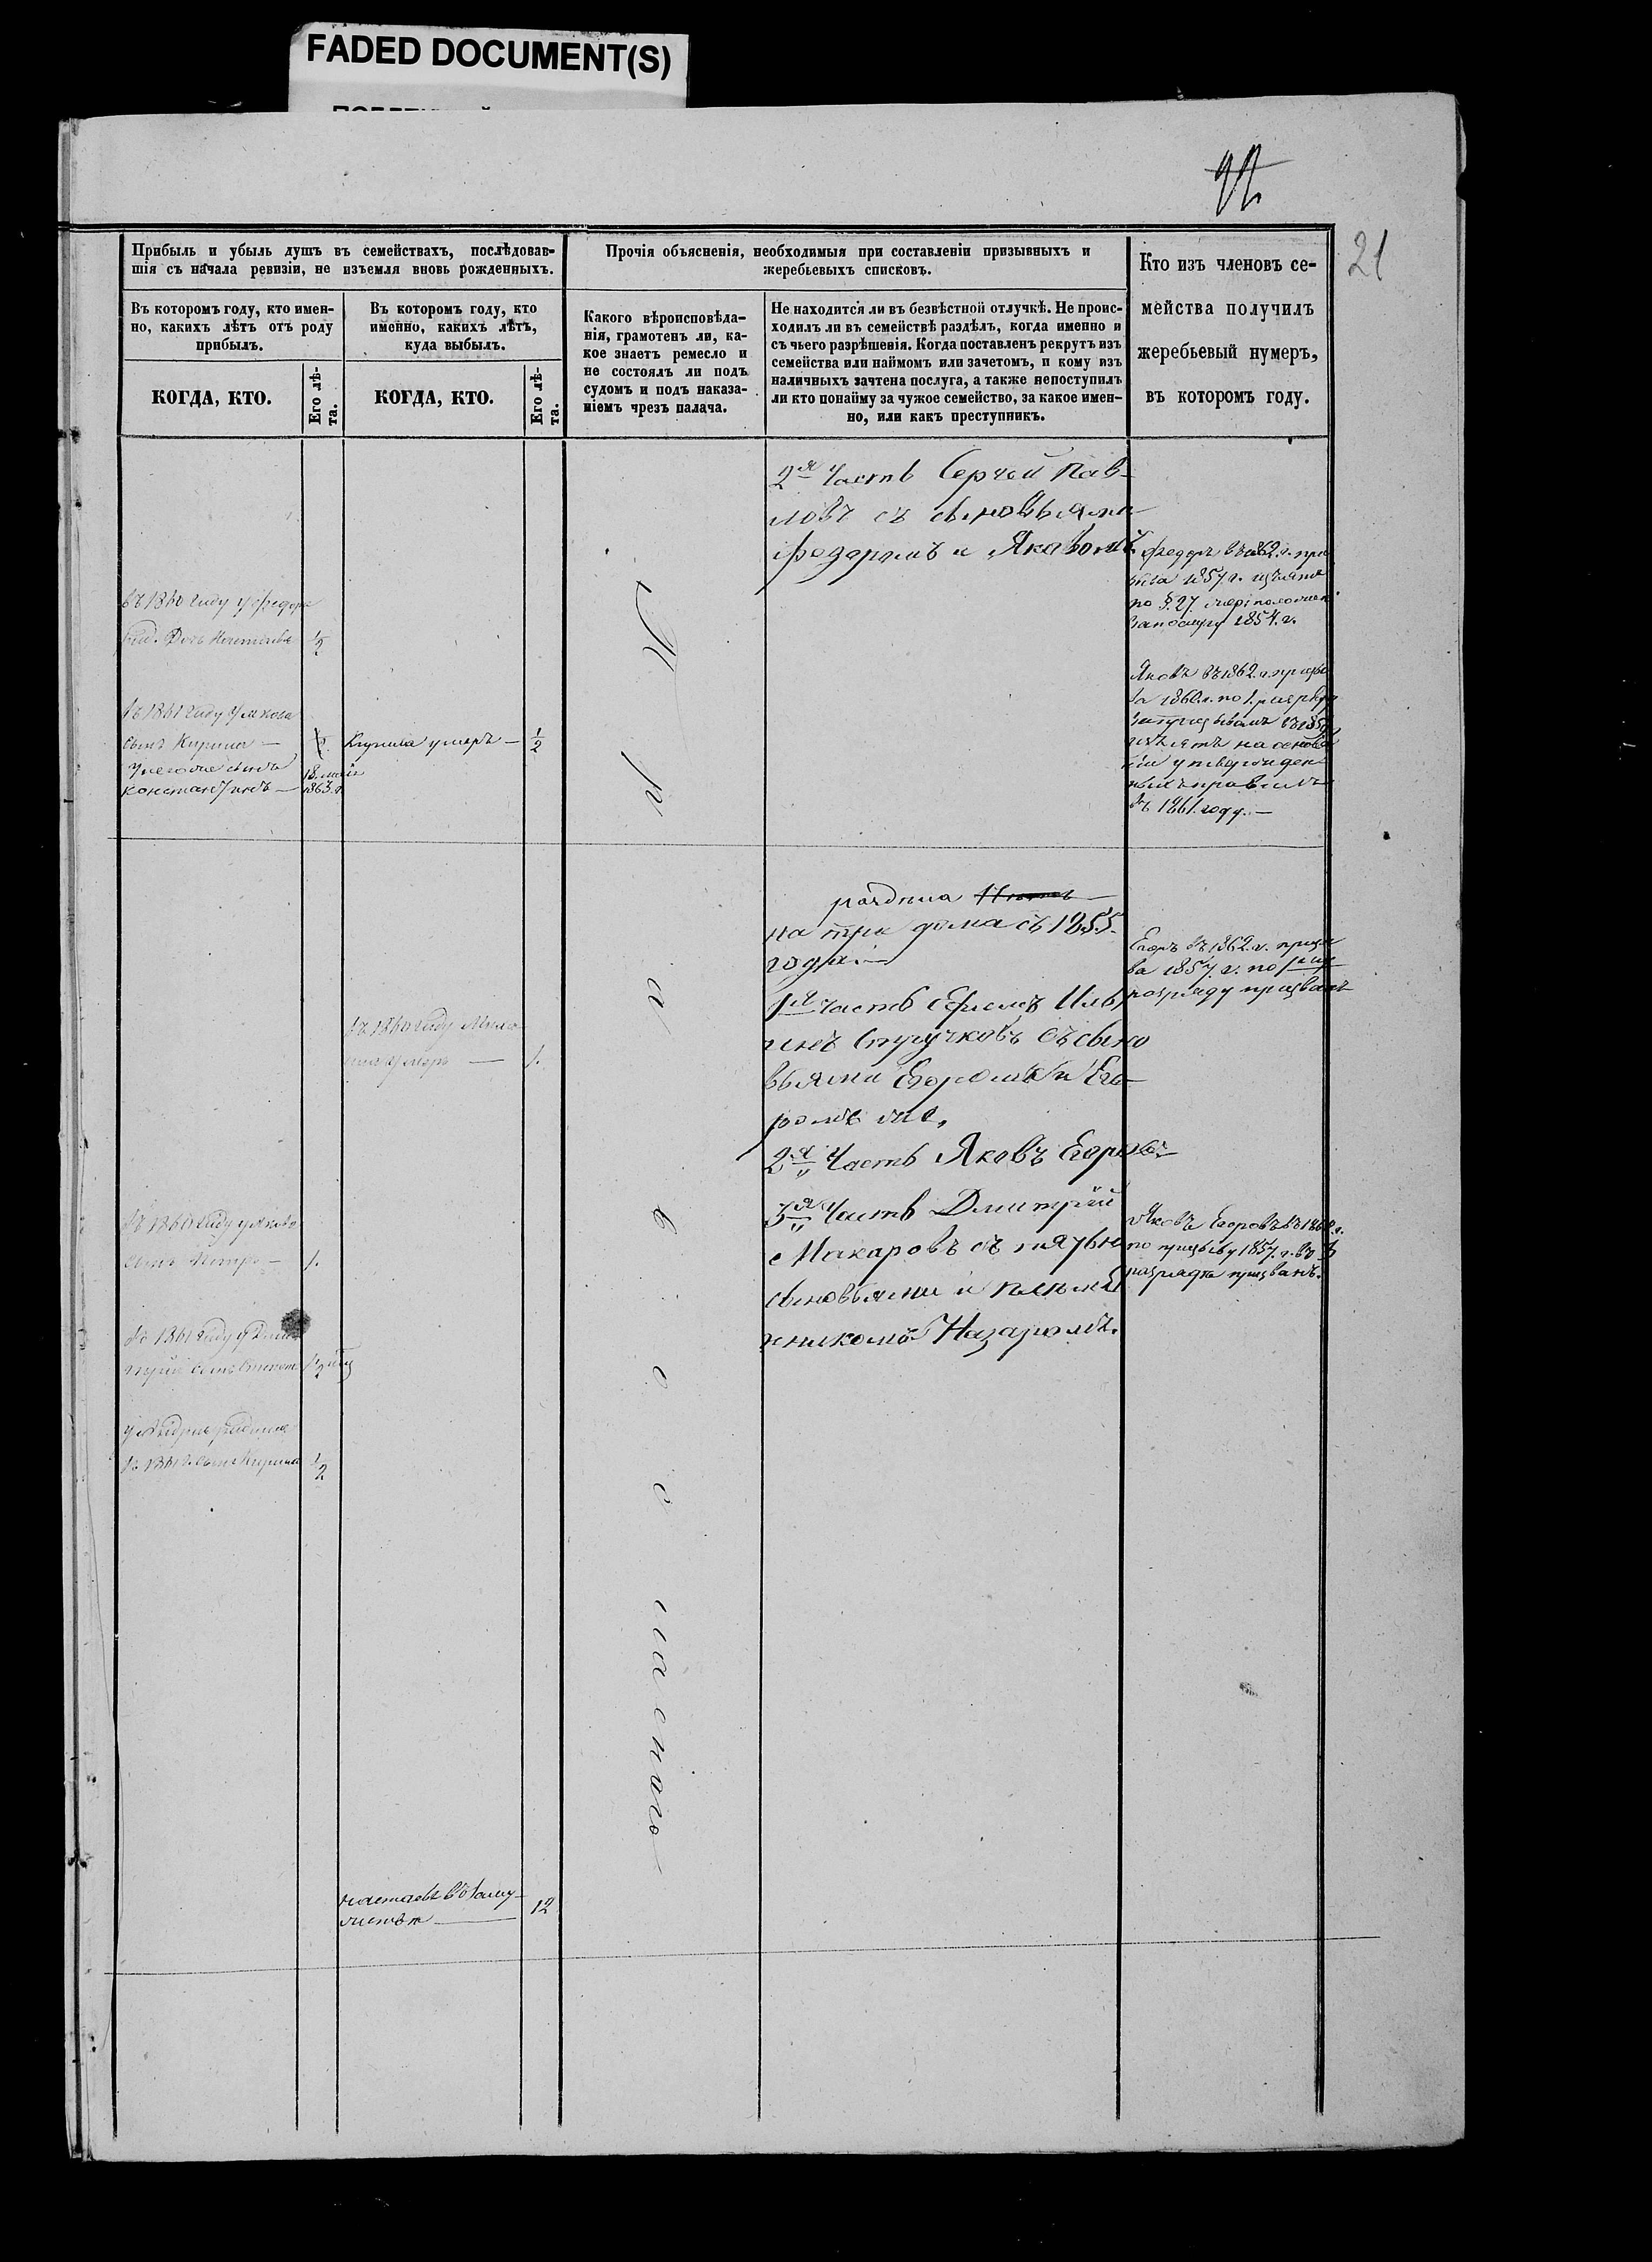 FADED DOCUMENT(S)
21
Прибыль и убыль душъ въ семействахъ, послѣдовав-
шія съ начала ревизіи, не изъемля вновь рожденныхъ.
Въ которомъ году, кто имен-
но, какихъ лѣтъ отъ роду
прибылъ.
КОГДА, КТО.
Его лѣ-
та.
Въ которомъ году, кто
именно, какихъ лѣтъ,
куда выбылъ.
КОГДА, КТО.
Его лѣ-
та.
Прочія объясненія, необходимыя при составленіи призывныхъ и
жеребьевыхъ списковъ.
Какого вѣроисповѣда-
нія, грамотенъ ли, ка-
кое знаетъ ремесло и
не состоялъ ли подъ
судомъ и подъ наказа-
ніемъ чрезъ палача.
Не находится ли въ безвѣстной отлучкѣ. Не проис-
ходилъ ли въ семействѣ раздѣлъ, когда именно и
съ чьего разрѣшенія. Когда поставленъ рекрутъ изъ
семейства или наймомъ или зачетомъ, и кому изъ
наличныхъ зачтена послуга, а также непоступилъ
ли кто понайму за чужое семейство, за какое имен-
но, или какъ преступникъ.
Кто изъ членовъ се-
мейства получилъ
жеребьевый нумеръ,
въ которомъ году.
въ 1860 году у Федора
1/2
въ 1861 году у Якова
сынъ Кирила —
у него же сынъ
18. мая
Константинъ —
1863. г.
Кирила умеръ — 1/2
въ 1860 году
умеръ — 1.
въ 1860 году у Якова
сынъ Петръ — 1.
въ 1861 году у Дми
трія сынъ
въ 1861 г. сынъ Кирила 1/2
12
Православнаго
2я Часть Сергей Пав-
ловъ съ сыновьями
Федоромъ и Яковомъ.
на три дома съ 1855.
года. —
1я часть Ефимъ Иль
инъ Стручковъ съ сыно
вьями Егоромъ и Его-
ромъ же,
2я Часть Яковъ Егоровъ
3я Часть Дмитрій
Макаровъ съ пятью
сыновьями и племя
нникомъ Назаромъ.
Федоръ въ 1862. г. при
зыва 1857. г. изъятъ
по §. 27.
1854. г.
Яковъ въ 1862. г. призы
ва 1860. г. по 1. разряду
изъятъ на основа
ніи утвержден
ныхъ правилъ
въ 1861. году. —
Егоръ въ 1862. г. призы
ва 1857. г. по
разряду призванъ
Яковъ Егоровъ въ
по призыву 1857. г. во
разрядѣ призванъ.